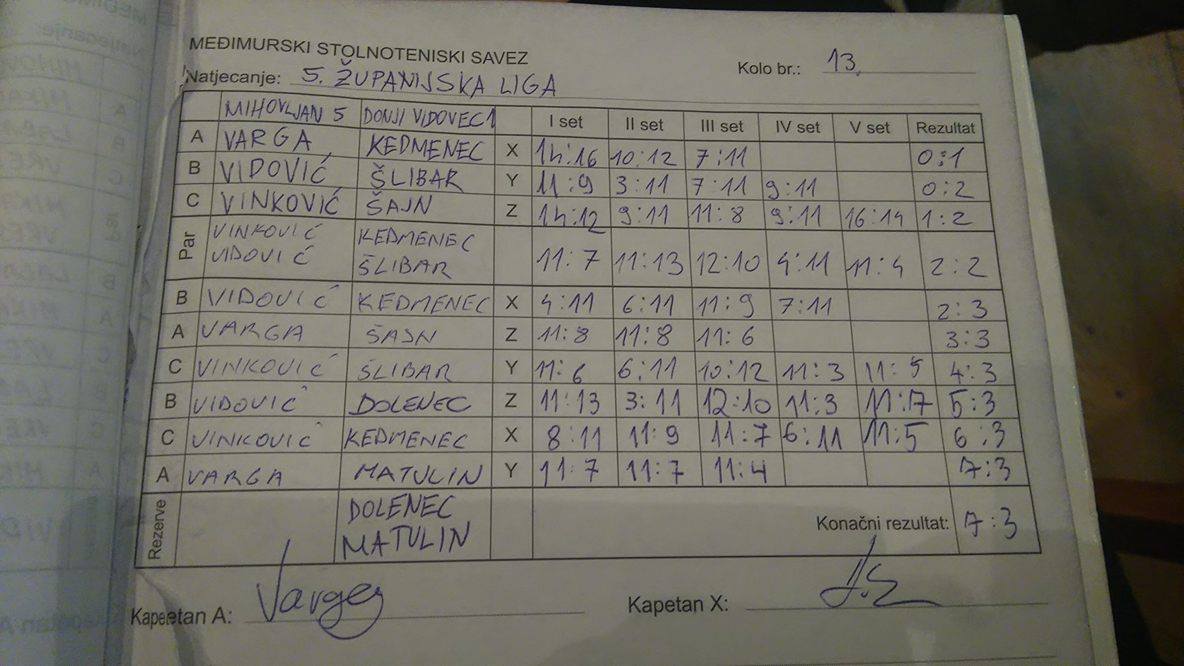 MEĐIMURSKI STOLNOTENISKI SAVEZ
Natjecanje: 5. ŽUPANIJSKA LIGA Kolo br.: 13.
MIHOVLJAN 5 DONJI VIDOVEC 1 I set II set III set IV set V set Rezultat
A VARGA KEDMENEC X 14:16 10:12 7:11 0:1
B VIDOVIĆ ŠLIBAR Y 11:9 3:11 7:11 9:11 0:2
C VINKOVIĆ ŠAJN Z 14:12 9:11 11:8 9:11 16:14 1:2
Par VINKOVIĆ VIDOVIĆ KEDMENEC ŠLIBAR 11:7 11:13 12:10 4:11 11:4 2:2
B VIDOVIĆ KEDMENEC X 4:11 6:11 11:9 7:11 2:3
A VARGA ŠAJN Z 11:8 11:8 11:6 3:3
C VINKOVIĆ ŠLIBAR Y 11:6 6:11 10:12 11:3 11:5 4:3
B VIDOVIĆ DOLENEC Z 11:13 3:11 12:10 11:3 11:7 5:3
C VINKOVIĆ KEDMENEC X 8:11 11:9 11:7 6:11 11:5 6:3
A VARGA MATULIN Y 11:7 11:7 11:4 7:3
Rezerve DOLENEC MATULIN Konačni rezultat: 7:3
Kapetan A: Varga Kapetan X: